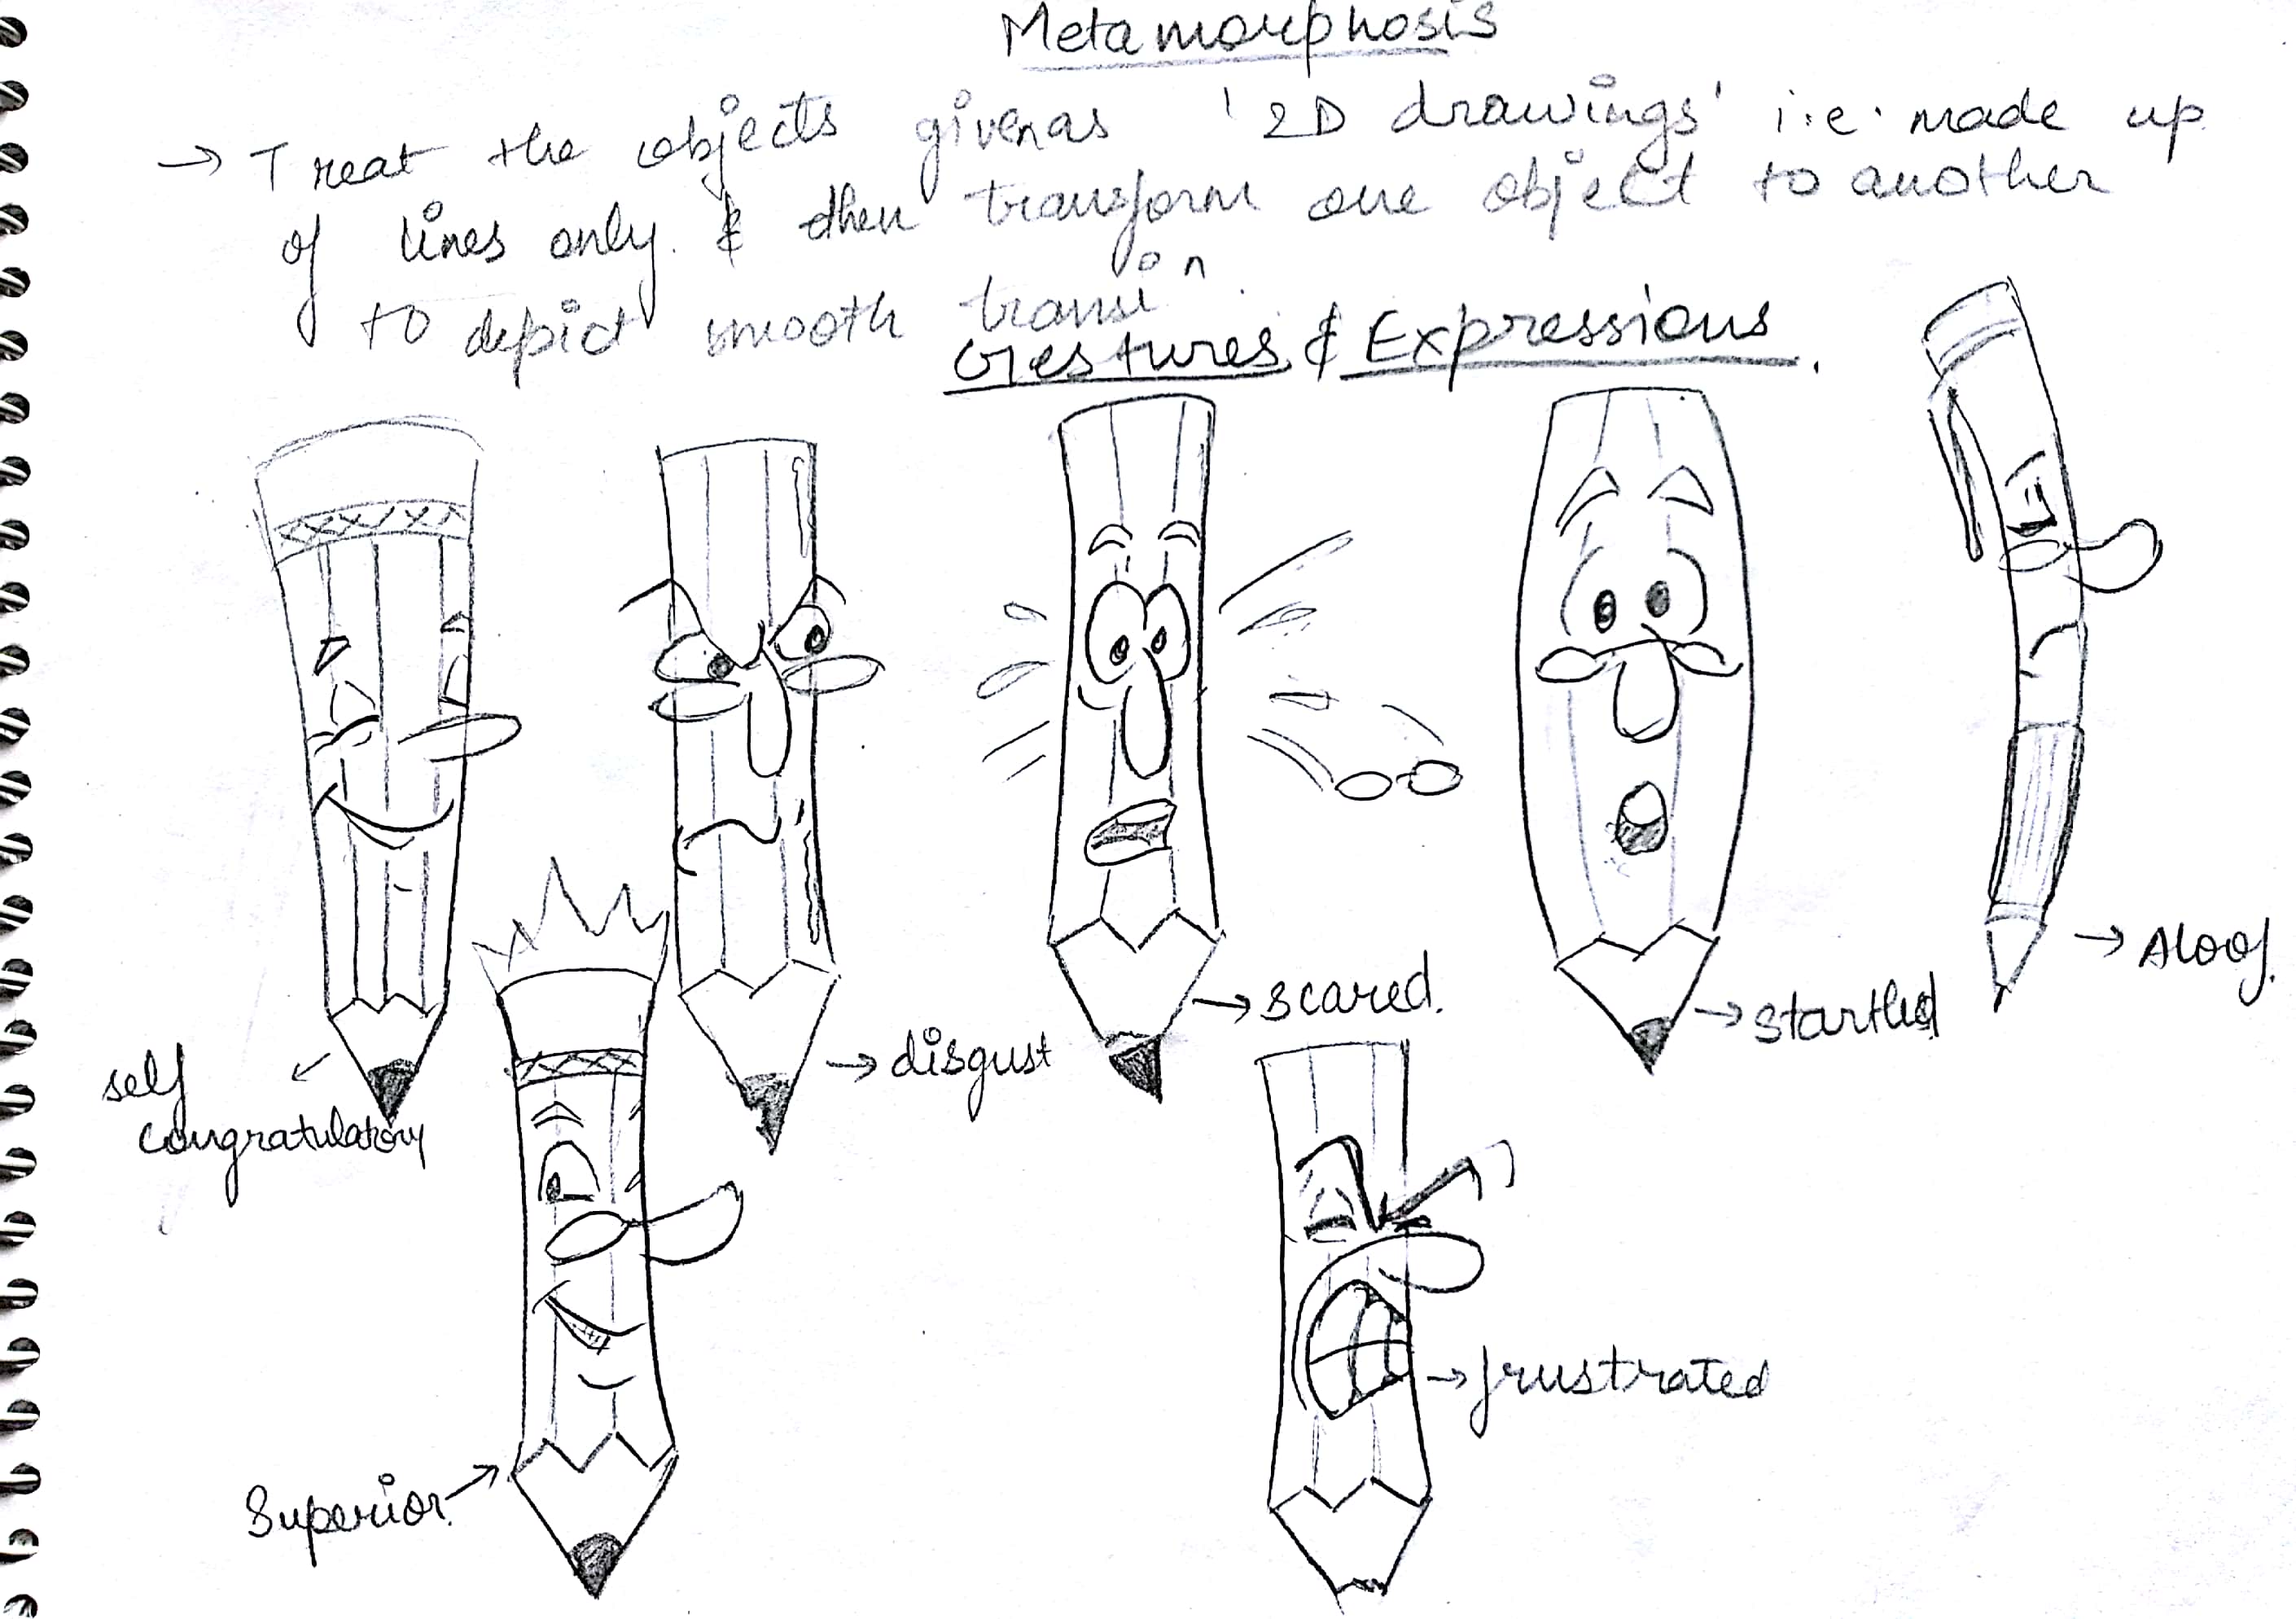 Metamorphosis
→ Treat the objects given as '2D drawings' i.e. made up
of lines only. & then transform one object to another
to depict smooth transi on
Gestures & Expressions.
self
congratulatory
→ disgust
→ scared.
→ startled
→ Aloof.
Superior.
→ frustrated